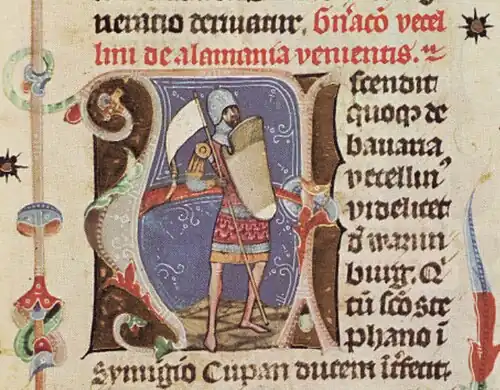 neratio deriuatur. Gn̄acō vecel
lini de alamania venientis.
scendit
quoqȝ de
bauaria
vecellin᾽
videlicet
d̄
burg. Q᾽
tū sc̄o ste
phano ī
symigio Cupan ducem īt̄fecit.